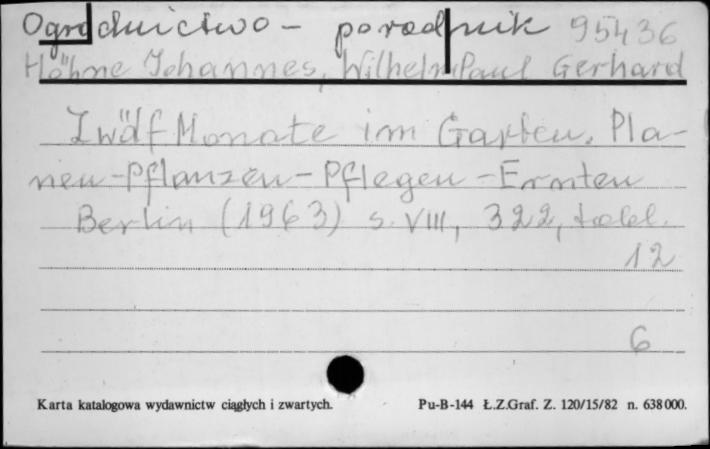 Ogrodnictwo - poradnik 95436
Höhne Johannes, Wilhelm Paul Gerhard
Zwölf Monate im Garten. Pla-
nen - Pflanzen - Pflegen - Ernten
Berlin (1963) s. VIII, 322, tabl.
12
6
Karta katalogowa wydawnictw ciągłych i zwartych. Pu-B-144 Ł.Z.Graf. Z. 120/15/82 n. 638000.